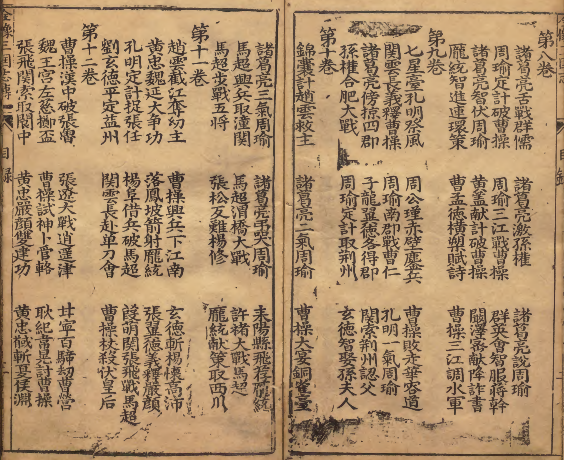 第八卷
諸葛亮舌戰群儒 諸葛亮激孫權 諸葛亮說周瑜
周瑜定計破曹操 周瑜三江戰曹操 群英會智服蔣幹
諸葛亮智伏周瑜 黃蓋獻計破曹操 闞澤密獻降詐書
龐統智進連環策 曹孟德橫槊賦詩 曹操三江調水軍
第九卷
七星臺孔明祭風 周公瑾赤壁鏖兵 曹操敗走華容道
關雲長義釋曹操 周瑜南郡戰曹仁 孔明一氣周瑜
諸葛亮傍掠四郡 子龍翼德各得郡 關索荊州認父
孫權合肥大戰 周瑜定計取荊州 玄德智娶孫夫人
第十卷
錦囊計趙雲救主 諸葛亮二氣周瑜 曹操大宴銅雀臺
諸葛亮三氣周瑜 諸葛亮弔哭周瑜 耒陽縣飛投龐統
馬超興兵取潼關 馬超渭橋大戰 許褚大戰馬超
馬超步戰五將 張松反難楊修 龐統獻策取西川
第十一卷
趙雲截江奪幼主 曹操興兵下江南 玄德斬楊懷高沛
黃忠魏延大爭功 落鳳坡箭射龐統 張翼德義釋嚴顏
孔明定計捉張任 楊阜借兵破馬超 葭萌關張飛戰馬超
劉玄德平定益州 關雲長赴單刀會 曹操杖殺伏皇后
第十二卷
曹操漢中破張魯 張遼大戰逍遙津 甘寧百騎劫曹營
魏王宮左慈擲盃 曹操試神卜管輅 耿紀韋晃討曹操
張飛關索取閬中 黃忠嚴顏雙建功 黃忠馘斬夏侯淵
全像三國志傳 目錄